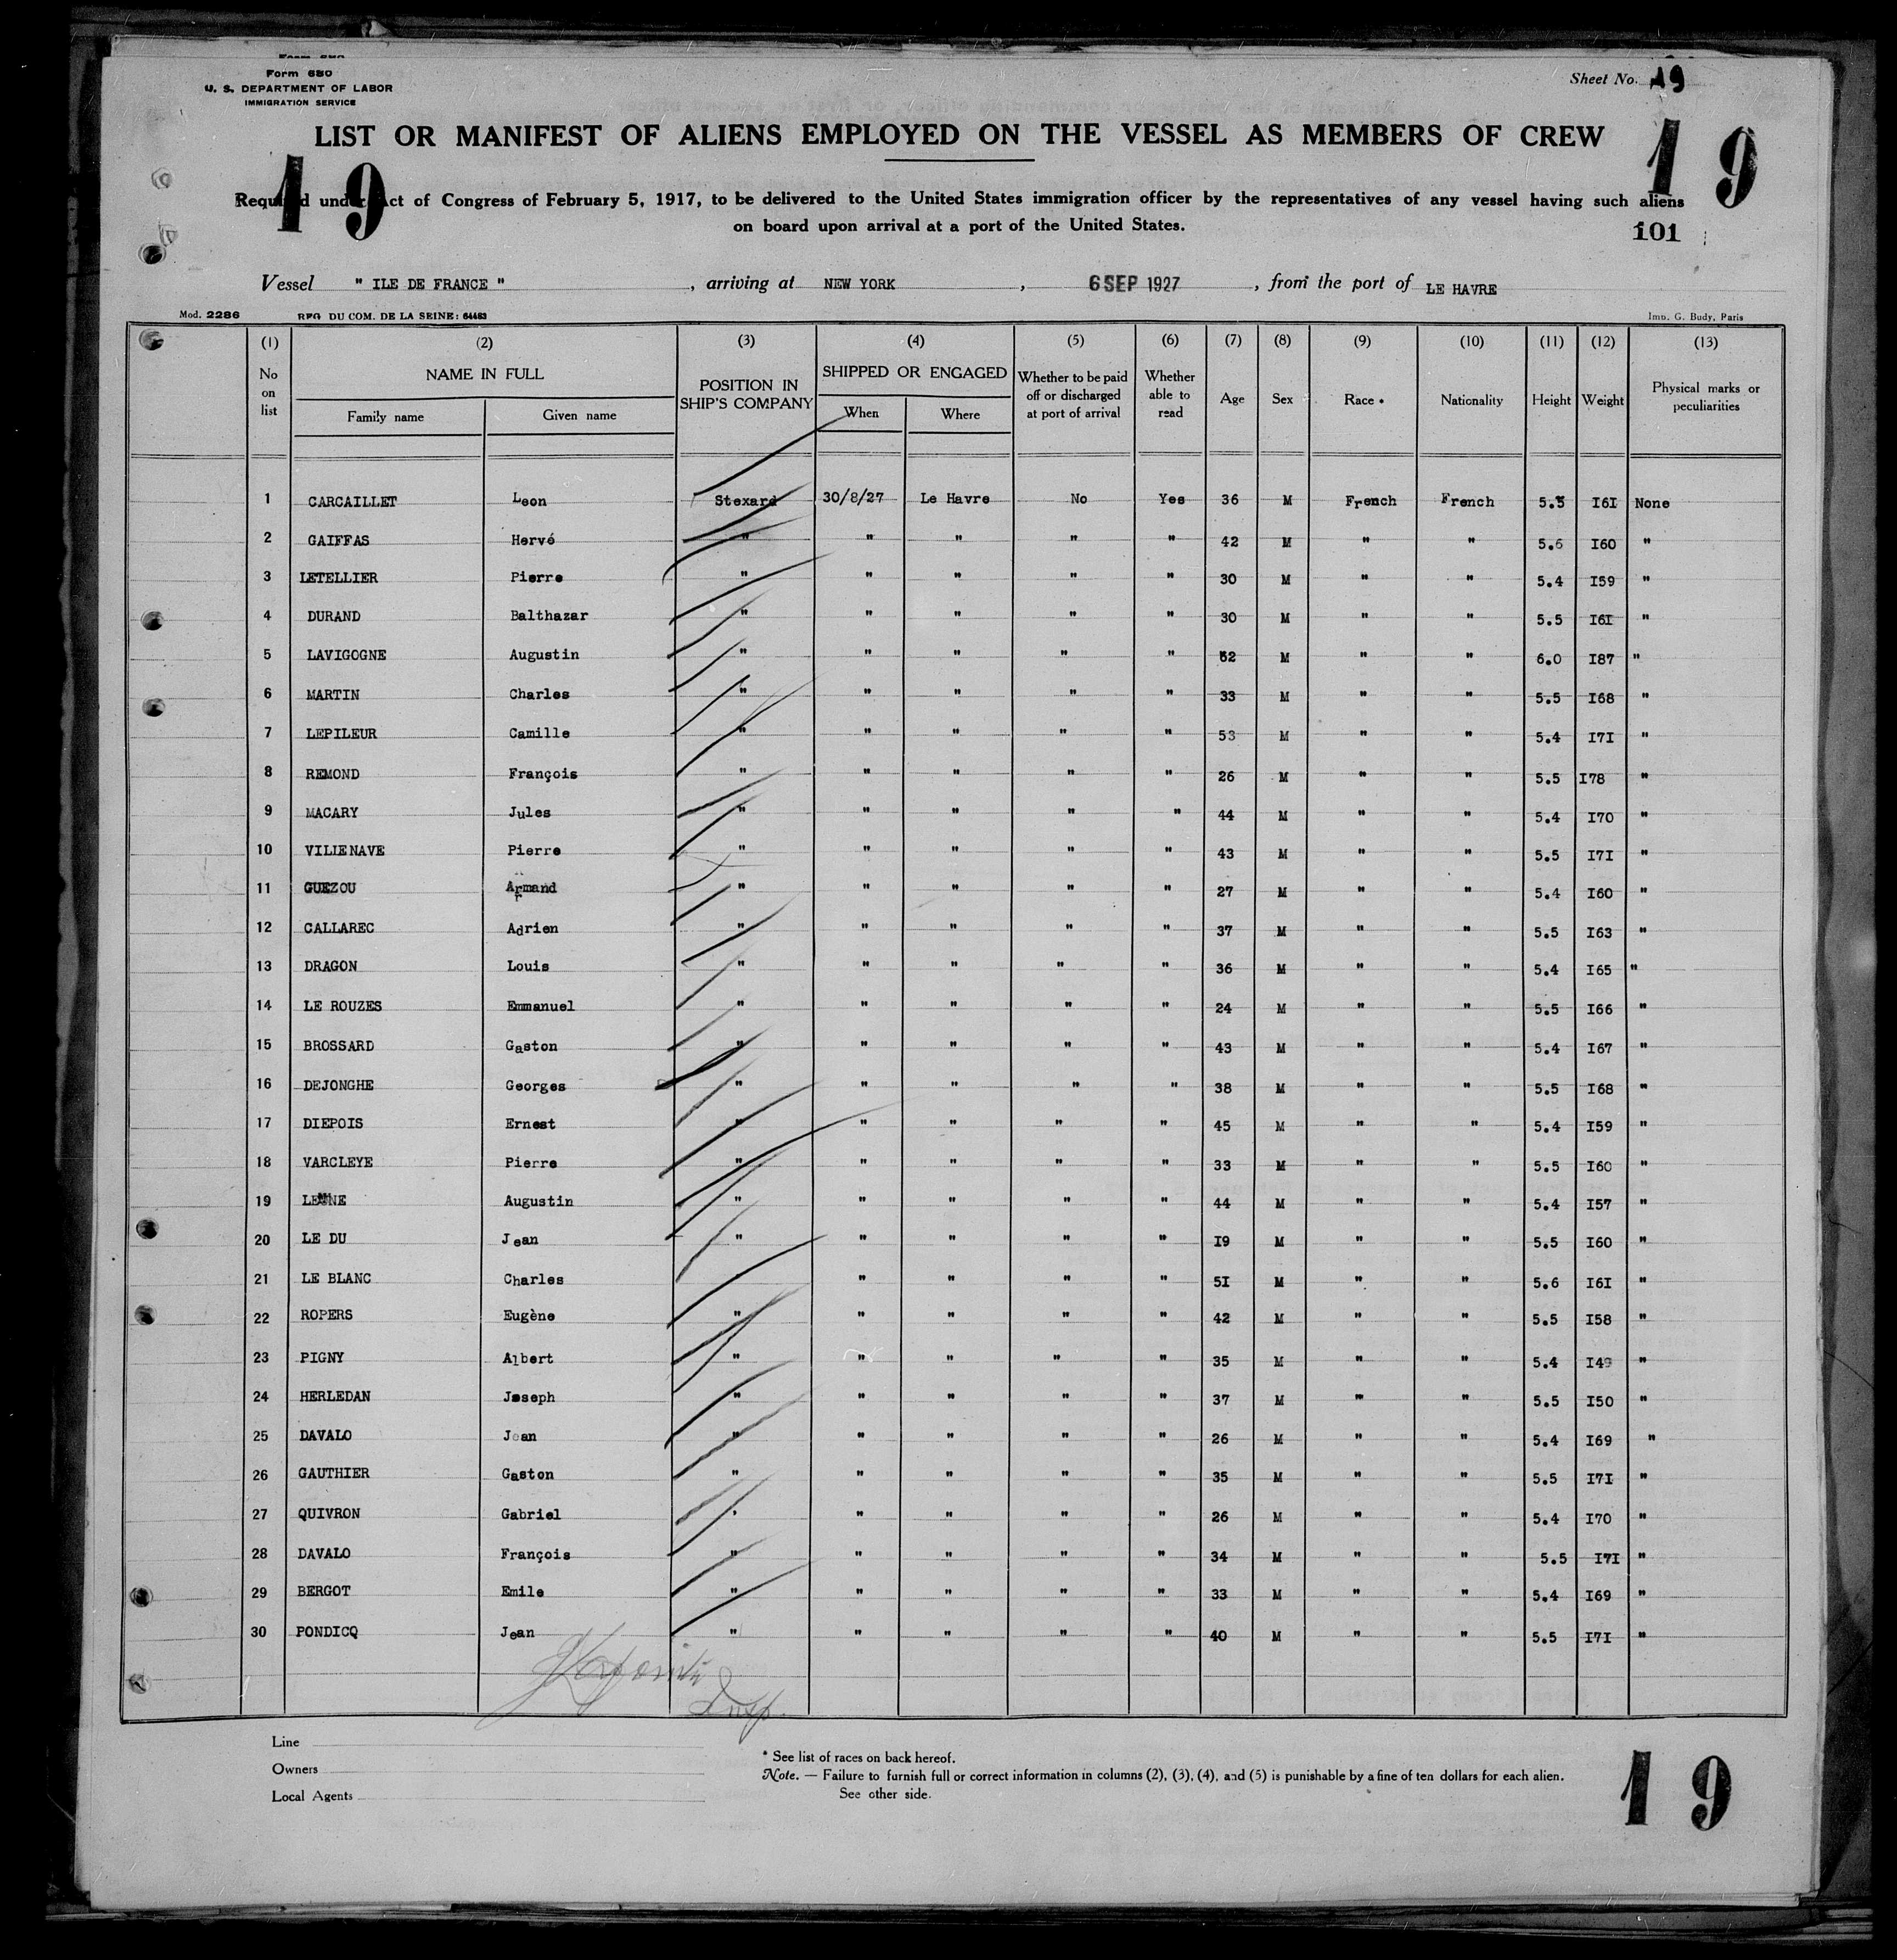 Form 680
Form 680
U. S. DEPARTMENT OF LABOR
IMMIGRATION SERVICE
Sheet No. 19
LIST OR MANIFEST OF ALIENS EMPLOYED ON THE VESSEL AS MEMBERS OF CREW
19 19
Required under Act of Congress of February 5, 1917, to be delivered to the United States immigration officer by the representatives of any vessel having such aliens
on board upon arrival at a port of the United States.
101
Vessel " ILE DE FRANCE " , arriving at NEW YORK , 6 SEP 1927 , from the port of LE HAVRE
Mod. 2286 REG DU COM. DE LA SEINE: 64483 Imp. G. Budy, Paris
(1) (2) (3) (4) (5) (6) (7) (8) (9) (10) (11) (12) (13)
No on list NAME IN FULL Family name Given name POSITION IN SHIP'S COMPANY SHIPPED OR ENGAGED When Where Whether to be paid off or discharged at port of arrival Whether able to read Age Sex Race * Nationality Height Weight Physical marks or peculiarities
1 CARCAILLET Leon Stexard 30/8/27 Le Havre No Yes 36 M French French 5.5 I6I None
2 GAIFFAS Hervé " " " " " 42 M " " 5.6 I60 "
3 LETELLIER Pierre " " " " " 30 M " " 5.4 I59 "
4 DURAND Balthazar " " " " " 30 M " " 5.5 I6I "
5 LAVIGOGNE Augustin " " " " " 52 M " " 6.0 I87 "
6 MARTIN Charles " " " " " 33 M " " 5.5 I68 "
7 LEPILEUR Camille " " " " " 53 M " " 5.4 I7I "
8 REMOND François " " " " " 26 M " " 5.5 I78 "
9 MACARY Jules " " " " " 44 M " " 5.4 I70 "
10 VILLENAVE Pierre " " " " " 43 M " " 5.5 I7I "
11 GUEZOU Armand " " " " " 27 M " " 5.4 I60 "
12 CALLAREC Adrien " " " " " 37 M " " 5.5 I63 "
13 DRAGON Louis " " " " " 36 M " " 5.4 I65 "
14 LE ROUZES Emmanuel " " " " " 24 M " " 5.5 I66 "
15 BROSSARD Gaston " " " " " 43 M " " 5.4 I67 "
16 DEJONGHE Georges " " " " " 38 M " " 5.5 I68 "
17 DIEPOIS Ernest " " " " " 45 M " " 5.4 I59 "
18 VARCLEYE Pierre " " " " " 33 M " " 5.5 I60 "
19 Augustin " " " " " 44 M " " 5.4 I57 "
20 LE DU Jean " " " " " I9 M " " 5.5 I60 "
21 LE BLANC Charles " " " " 5I M " " 5.6 I6I "
22 ROPERS Eugène " " " " " 42 M " " 5.5 I58 "
23 PIGNY Albert " " " " " 35 M " " 5.4 I49 "
24 HERLEDAN Joseph " " " " " 37 M " " 5.5 I50 "
25 DAVALO Jean " " " " " 26 M " " 5.4 I69 "
26 GAUTHIER Gaston " " " " " 35 M " " 5.5 I7I "
27 QUIVRON Gabriel " " " " " 26 M " " 5.4 I70 "
28 DAVALO François " " " " " 34 M " " 5.5 I7I "
29 BERGOT Emile " " " " " 33 M " " 5.4 I69 "
30 PONDICQ Jean " " " " " 40 M " " 5.5 I7I "
Insp.
Line
Owners
Local Agents
* See list of races on back hereof.
Note. — Failure to furnish full or correct information in columns (2), (3), (4), and (5) is punishable by a fine of ten dollars for each alien.
See other side.
19